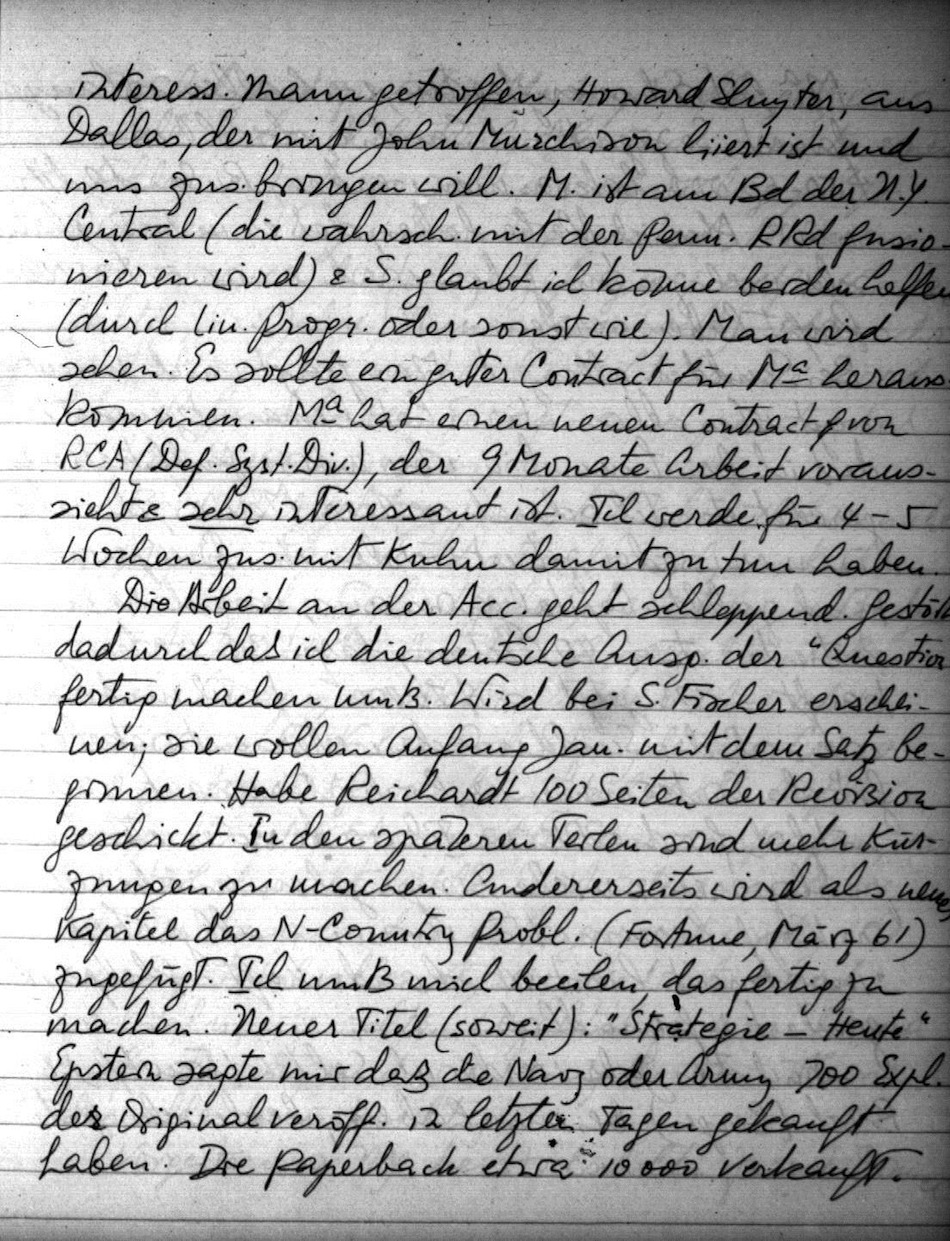 interess. Mann getroffen, Howard Sluyter, aus
Dallas, der mit John Murchison liiert ist und
uns zus. bringen will. M. ist am Bd der N.Y.
Central (die wahrsch. mit der Penn. RRd fusio-
nieren wird) & S. glaubt ich könne beiden helfen
(durch lin. Progr. oder sonstwie). Man wird
sehen. Es sollte ein guter Contract für Ma heraus
kommen. Ma hat einen neuen Contract von
RCA (Def. Syst. Div.), der 9 Monate Arbeit voraus-
sieht & sehr interessant ist. Ich werde für 4-5
Wochen zus. mit Kuhn damit zu tun haben.
Die Arbeit an der Acc. geht schleppend. Gestört
dadurch das ich die deutsche Ausg. der "Question
fertig machen muß. Wird bei S. Fischer erschei-
nen; sie wollen Anfang Jan. mit dem Satz be-
ginnen. Habe Reichardt 100 Seiten der Revision
geschickt. In den späteren Teilen sind mehr Kür-
zungen zu machen. Andererseits wird als neue
Kapitel das N-Country Probl. (Fortune, März 61)
zugefügt. Ich muß mich beeilen, das fertig zu
machen. Neuer Titel (soweit): "Strategie – Heute"
Epstein sagte mir daß die Navy oder Army 700 Expl.
der Originalveröff. in letzten Tagen gekauft
haben. Die Paperback etwa 10000 verkauft.